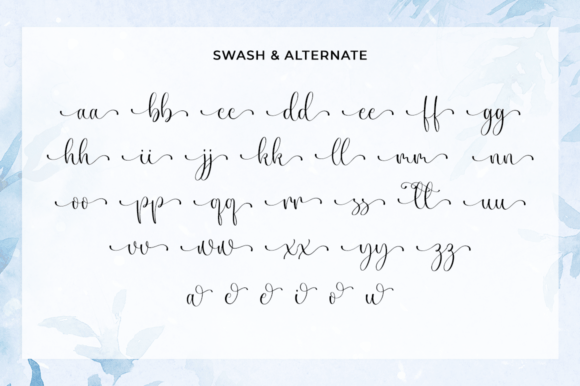 SWASH & ALTERNATE
aa bb cc dd ee ff gg
hh ii jj kk ll mm nn
oo pp qq rr ss tt uu
vv ww xx yy zz
a c e i o u